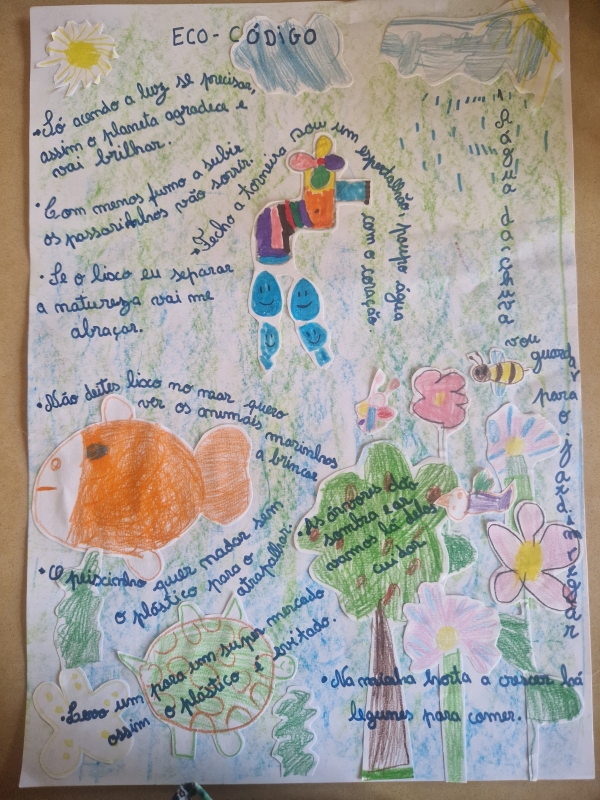 ECO-CÓDIGO
• Só acendo a luz se precisar,
assim o planeta agradece e
vai brilhar.
• Com menos fumo a subir
os passarinhos vão sorrir.
• Se o lixo eu separar
a natureza vai me
abraçar.
• Fecho a torneira sou um espertalhão, poupo água
com o coração
A água da chuva
vou
guardar
para o jardim regar
• Não deites lixo no mar quero
ver os animais marinhos
a brincar
• O peixinho quer nadar sem
o plástico para o
atrapalhar.
• As árvores dão
sombra e ar
vamos lá delas
cuidar
• Levo um para um super mercado
assim o plástico é evitado.
• Na minha horta a crescer há
legumes para comer.